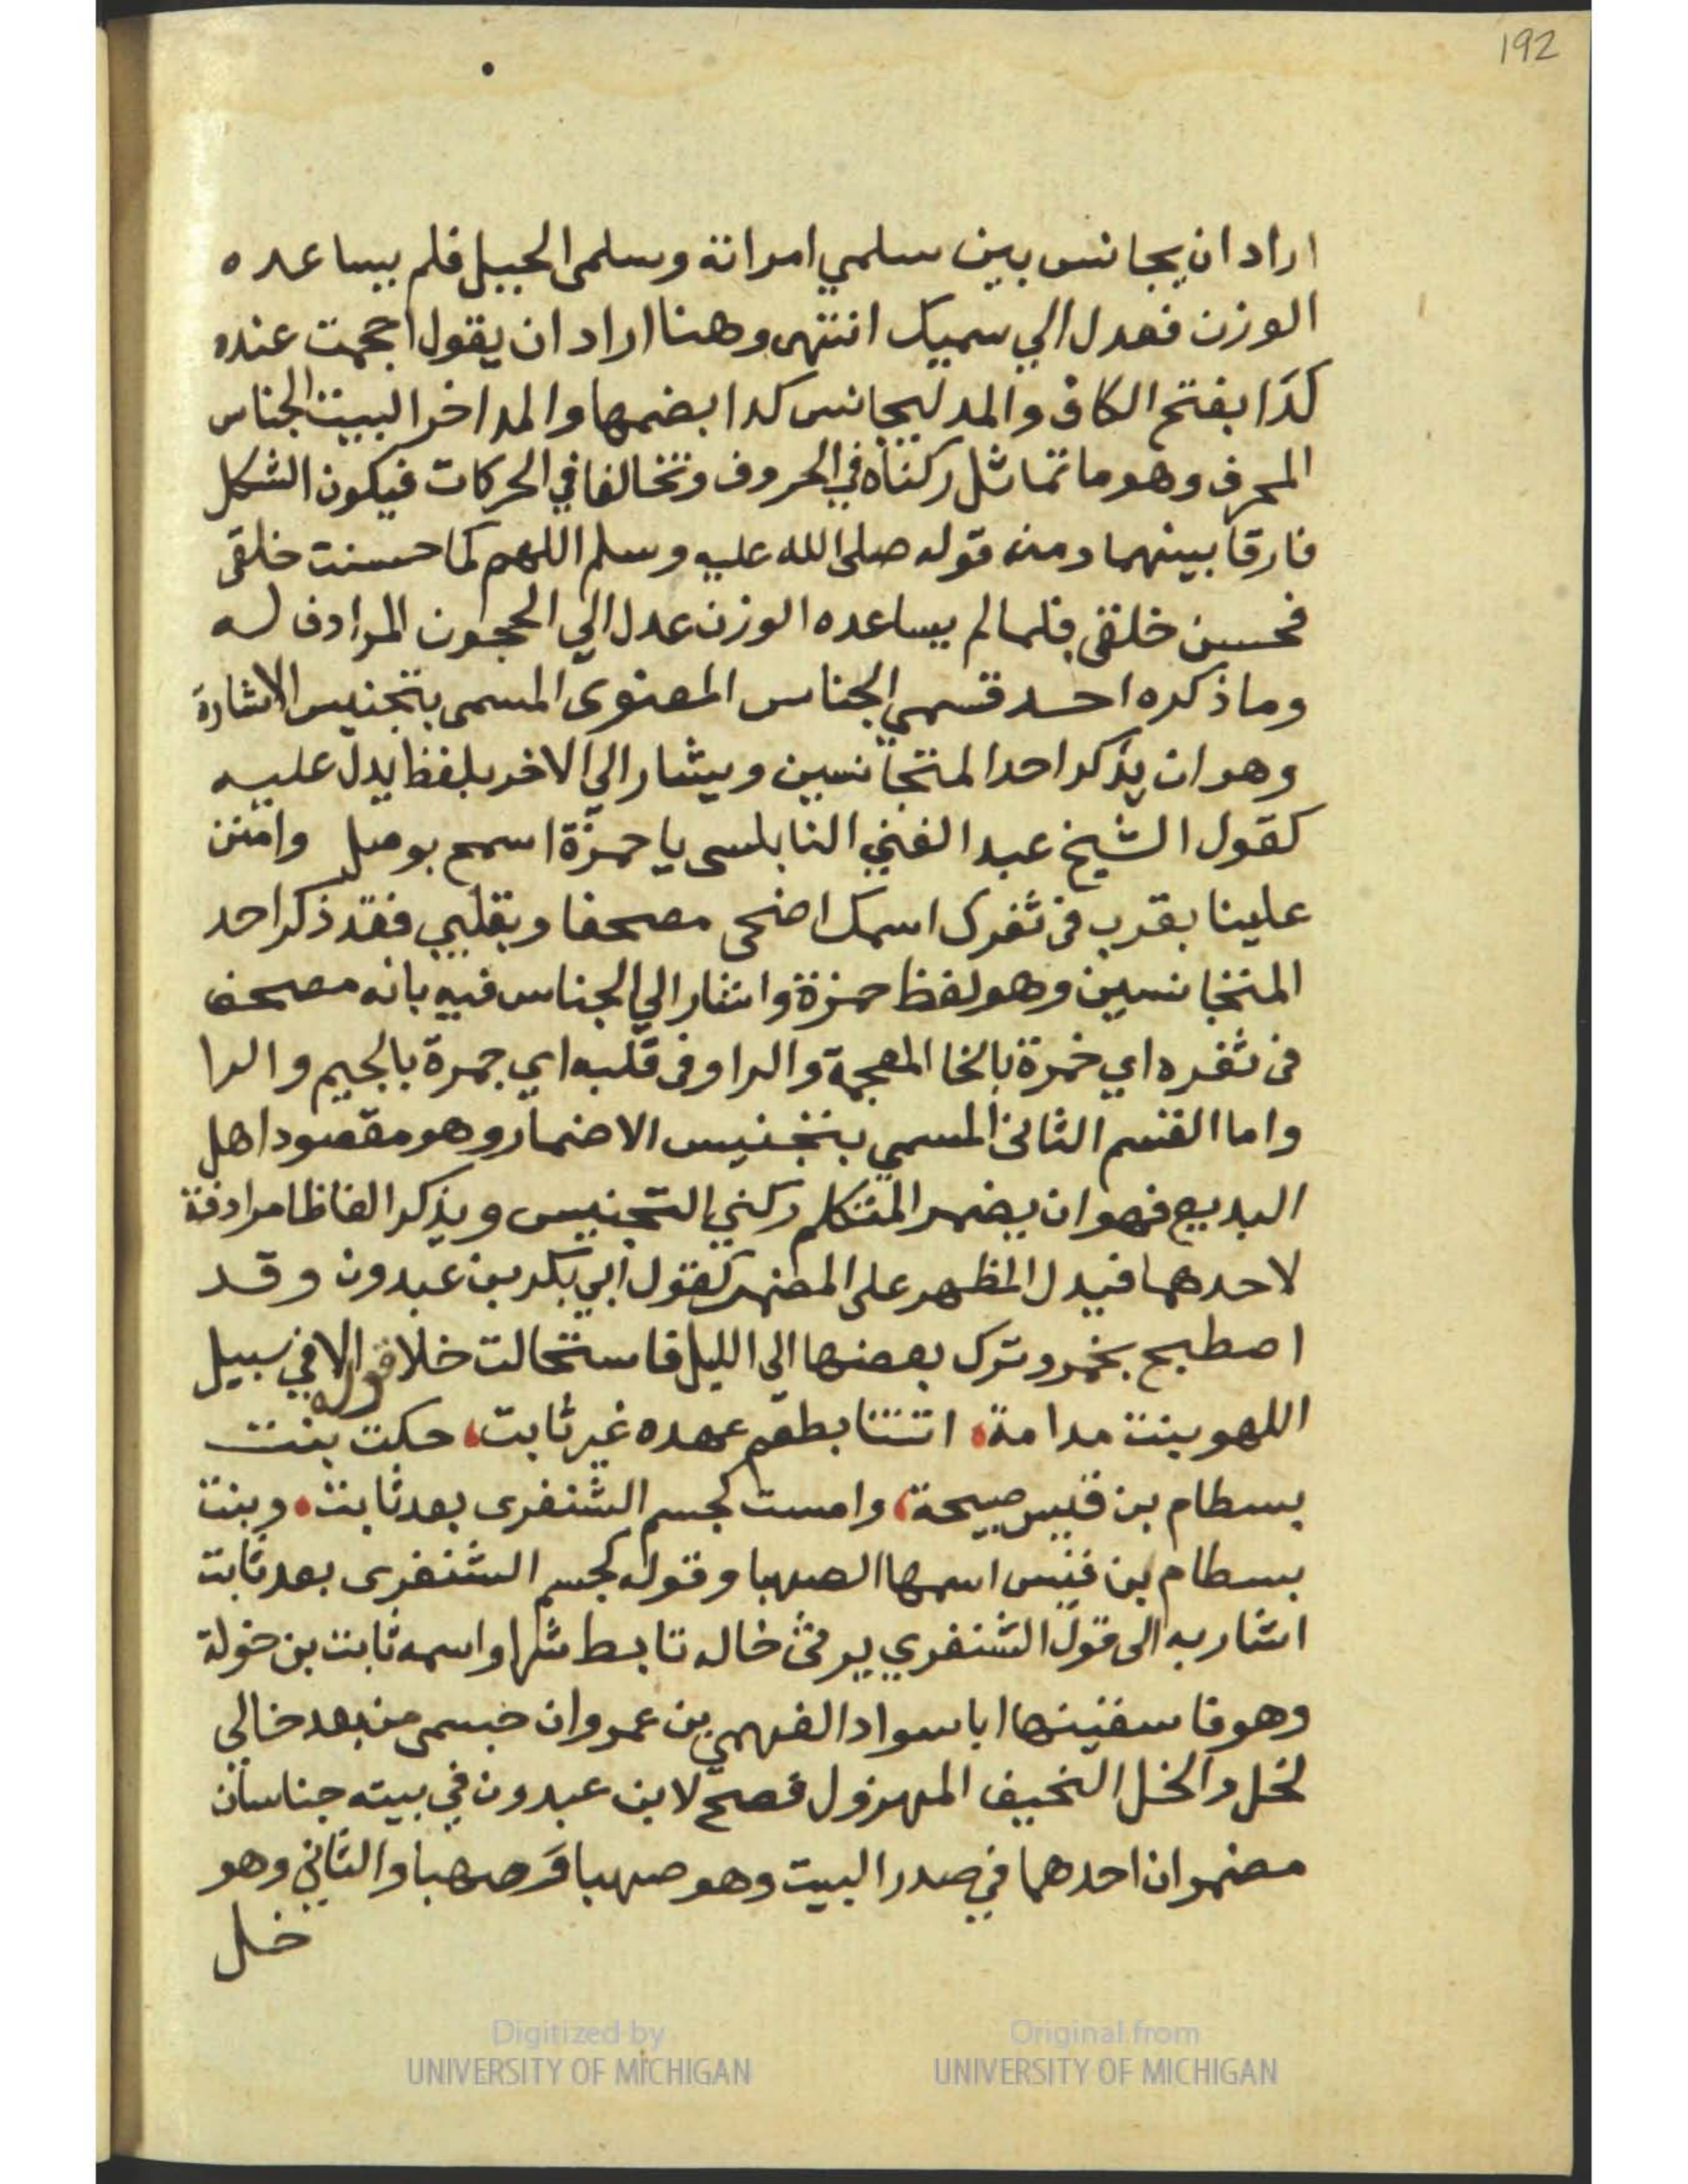 192
اراد ان يجانس بين سلمي امراته وسلمى الجبيل فلم يساعده
الوزن فعدل الي سميك انتهى وهنا اراد ان يقول احجمت عنده
كدَا بفتح الكاف والمد ليجانس كدا بضمها والمد اخر البيت الجناس
المحرف وهو ما تماثل ركناه في الحروف وتخالفا في الحركات فيكون الشكل
فارقا بينهما ومنه قوله صلى الله عليه وسلم اللهم كما حسنت خلقى
فحسن خلقى فلما لم يساعده الوزن عدل الي الحجون المرادف له
وما ذكره احد قسمي الجناس المعنوى المسمى بتجنيس الاشارة
وهو ان يذكر احد المتجانسين ويشار الي الاخر بلفظ يدل عليه
كقول الشيخ عبد الغني النابلسى يا حمزة اسمع بوصل وامنن
علينا بقرب فى ثغرك اسمك اضحى مصحفا وبقلبي فقد ذكر احد
المتجانسين وهو لفظ حمزة واشار الي الجناس فيه بانه مصحف
فى ثغره اي خمرة بالخا المعجمة والرا وفى قلبه اي جمرة بالجيم والرا
واما القسم الثاني المسمي بتجنيس الاضمار وهو مقصود اهل
البديع فهو ان يضمر المتكلم ركني التجنيس ويذكر الفاظا مرادفة
لاحدهما فيدل المظهر على المضمر كقول ابي بكر بن عبدون وقد
اصطبح بخمر وترك بعضها الى الليل فاستحالت خلا قوله الا في سبيل
اللهو بنت مدامة، اتتنا بطعم عهده غير ثابت، حكت بنت
بسطام بن قيس صبيحة، وامست كجسم الشنفرى بعد ثابت، وبنت
بسطام بن قيس اسمها الصهبا وقوله كجسم الشنفرى بعد ثابت
اشار به الى قول الشنفري يرثى خاله تابط شرا واسمه ثابت بن خولة
وهو فاسقنيها يا سواد الفهمي بن عمرو ان جسمى من بعد خالي
لخل والخل النحيف المهزول فصح لابن عبدون في بيته جناسان
مضمران احدهما في صدر البيت وهو صهبا وَصهبا والثاني وهو
خل
Digitized by
UNIVERSITY OF MICHIGAN
Original from
UNIVERSITY OF MICHIGAN